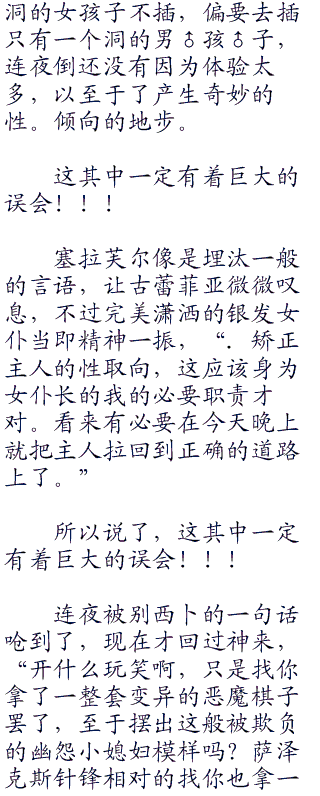 洞的女孩子不插，偏要去插
只有一个洞的男♂孩♂子，
连夜倒还没有因为体验太
多，以至于了产生奇妙的
性。倾向的地步。
这其中一定有着巨大的
误会！！！
塞拉芙尔像是埋汰一般
的言语，让古蕾菲亚微微叹
息，不过完美潇洒的银发女
仆当即精神一振，“．矫正
主人的性取向，这应该身为
女仆长的我的必要职责才
对。看来有必要在今天晚上
就把主人拉回到正确的道路
上了。”
所以说了，这其中一定
有着巨大的误会！！！
连夜被别西卜的一句话
呛到了，现在才回过神来，
“开什么玩笑啊，只是找你
拿了一整套变异的恶魔棋子
罢了，至于摆出这般被欺负
的幽怨小媳妇模样吗？萨泽
克斯针锋相对的找你也拿一